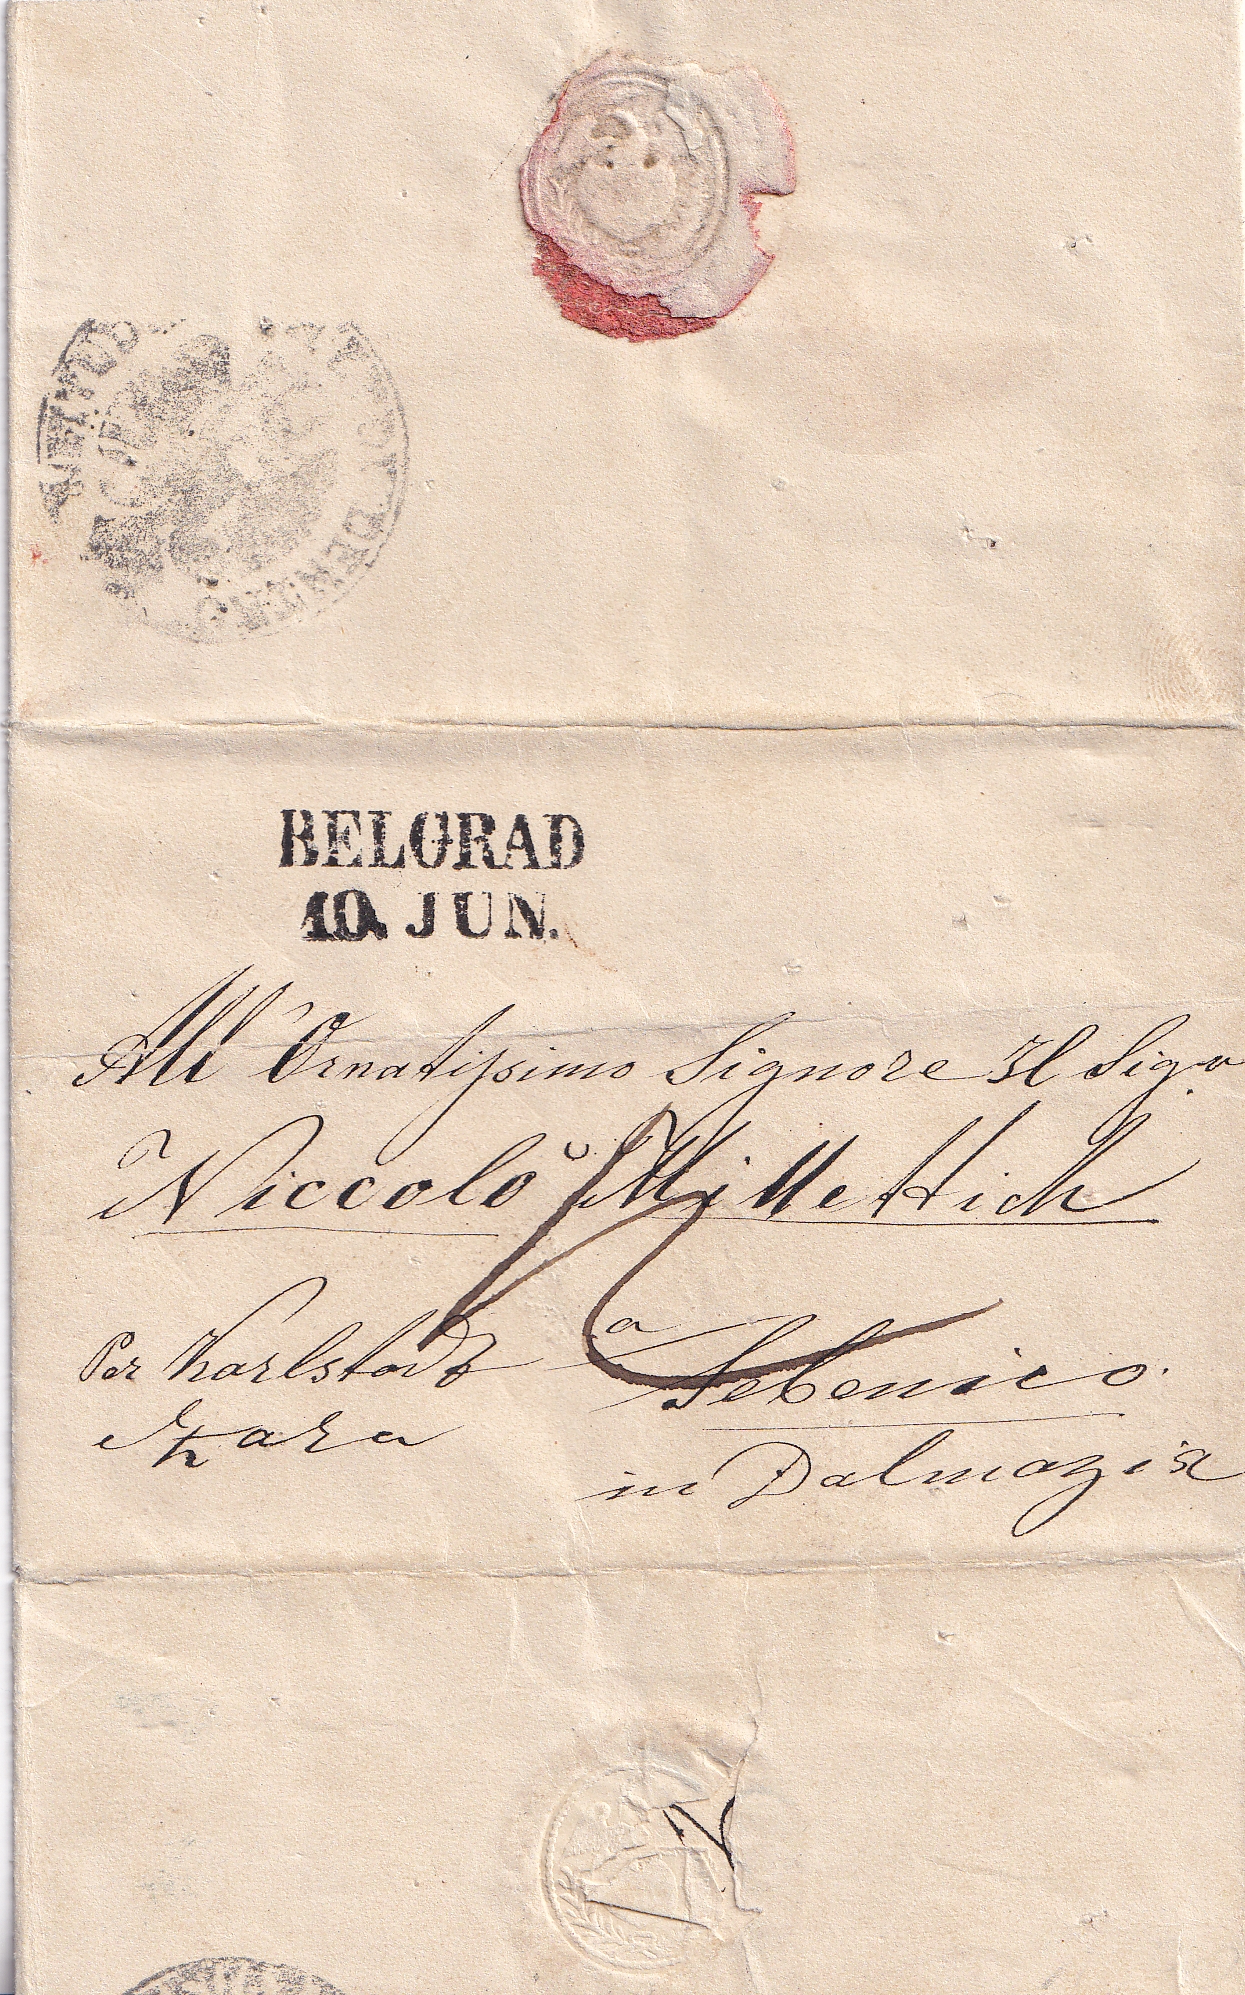 BELGRAD
10. JUN.
All' Ornatissimo Signore Il Sigr
Niccolò Millettich
a
Per Karlstadt
Sebenico.
e Zara
in Dalmazia